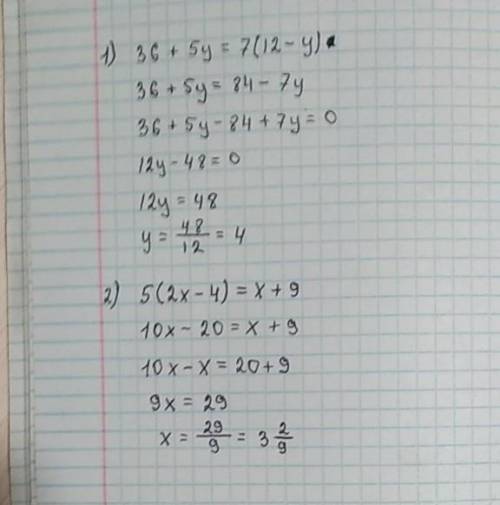 1) 36 + 5y = 7(12 - y)
36 + 5y = 84 - 7y
36 + 5y - 84 + 7y = 0
12y - 48 = 0
12y = 48
y = 48/12 = 4
2) 5(2x - 4) = x + 9
10x - 20 = x + 9
10x - x = 20 + 9
9x = 29
x = 29/9 = 3 2/9